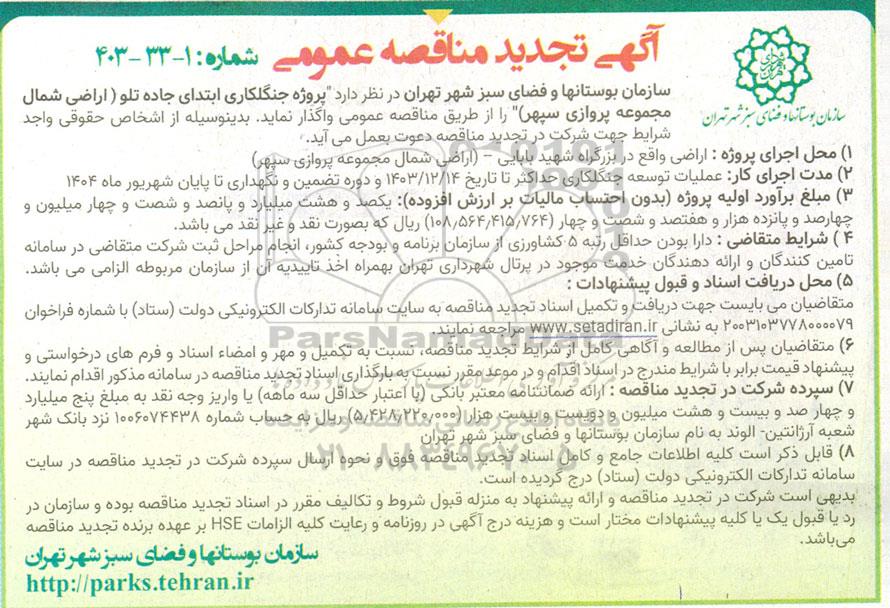 آگهی تجدید مناقصه عمومی شماره: ۱-۳۳-۴۰۳
سازمان بوستانها و فضای سبز شهر تهران
سازمان بوستانها و فضای سبز شهر تهران در نظر دارد "پروژه جنگلکاری ابتدای جاده تلو ( اراضی شمال
مجموعه پروازی سپهر)" را از طریق مناقصه عمومی واگذار نماید. بدینوسیله از اشخاص حقوقی واجد
شرایط جهت شرکت در تجدید مناقصه دعوت بعمل می آید.
۱) محل اجرای پروژه : اراضی واقع در بزرگراه شهید بابایی – (اراضی شمال مجموعه پروازی سپهر)
۲) مدت اجرای کار: عملیات توسعه جنگلکاری حداکثر تا تاریخ ۱۴۰۳/۱۲/۱۴ و دوره تضمین و نگهداری تا پایان شهریور ماه ۱۴۰۴
۳) مبلغ برآورد اولیه پروژه (بدون احتساب مالیات بر ارزش افزوده): یکصد و هشت میلیارد و پانصد و شصت و چهار میلیون و
چهارصد و پانزده هزار و هفتصد و شصت و چهار (۱۰۸٫۵۶۴٫۴۱۵٫۷۶۴) ریال که بصورت نقد و غیر نقد می باشد.
۴ ) شرایط متقاضی : دارا بودن حداقل رتبه ۵ کشاورزی از سازمان برنامه و بودجه کشور، انجام مراحل ثبت شرکت متقاضی در سامانه
تامین کنندگان و ارائه دهندگان خدمت موجود در پرتال شهرداری تهران بهمراه اخذ تاییدیه آن از سازمان مربوطه الزامی می باشد.
۵) محل دریافت اسناد و قبول پیشنهادات :
متقاضیان می بایست جهت دریافت و تکمیل اسناد تجدید مناقصه به سایت سامانه تدارکات الکترونیکی دولت (ستاد) با شماره فراخوان
۲۰۰۳۱۰۳۷۷۸۰۰۰۰۷۹ به نشانی www.setadiran.ir مراجعه نمایند.
۶) متقاضیان پس از مطالعه و آگاهی کامل از شرایط تجدید مناقصه، نسبت به تکمیل و مهر و امضاء اسناد و فرم های درخواستی و
پیشنهاد قیمت برابر با شرایط مندرج در اسناد اقدام و در موعد مقرر نسبت به بارگذاری اسناد تجدید مناقصه در سامانه مذکور اقدام نمایند.
۷) سپرده شرکت در تجدید مناقصه : ارائه ضمانتنامه معتبر بانکی (با اعتبار حداقل سه ماهه) یا واریز وجه نقد به مبلغ پنج میلیارد
و چهار صد و بیست و هشت میلیون و دویست و بیست هزار (۵٫۴۲۸٫۲۲۰٫۰۰۰) ریال به حساب شماره ۱۰۰۶۰۷۴۴۳۸ نزد بانک شهر
شعبه آرژانتین- الوند به نام سازمان بوستانها و فضای سبز شهر تهران
۸) قابل ذکر است کلیه اطلاعات جامع و کامل اسناد تجدید مناقصه فوق و نحوه ارسال سپرده شرکت در تجدید مناقصه در سایت
سامانه تدارکات الکترونیکی دولت (ستاد) درج گردیده است.
بدیهی است شرکت در تجدید مناقصه و ارائه پیشنهاد به منزله قبول شروط و تکالیف مقرر در اسناد تجدید مناقصه بوده و سازمان در
رد یا قبول یک یا کلیه پیشنهادات مختار است و هزینه درج آگهی در روزنامه و رعایت کلیه الزامات HSE بر عهده برنده تجدید مناقصه
می‌باشد.
سازمان بوستانها و فضای سبز شهر تهران
http://parks.tehran.ir
ParsNamadData